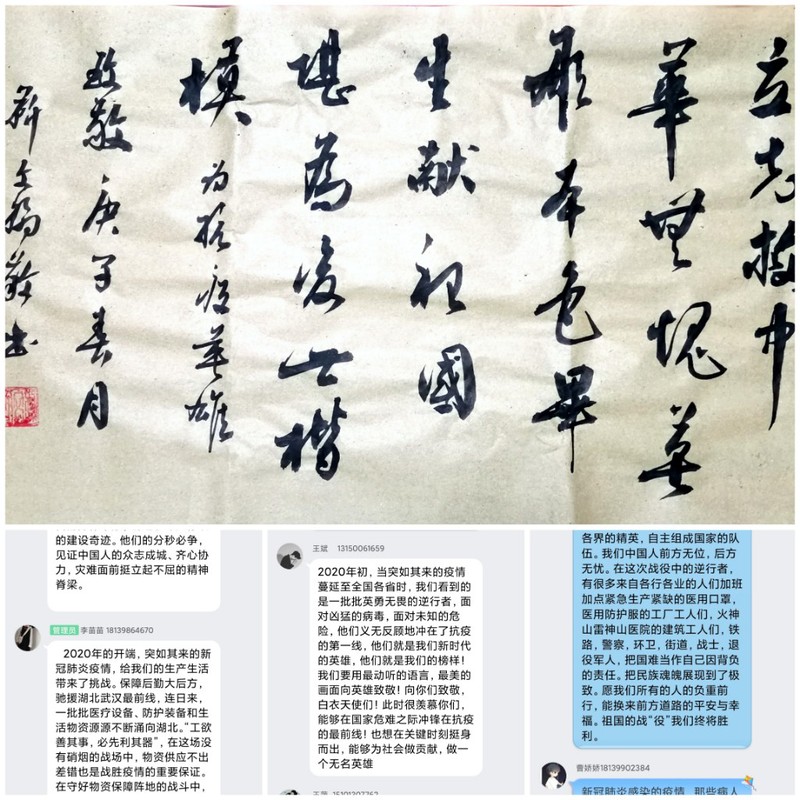 立志振中
華無愧英
雄本色畢
生献祖國
堪為後世楷
模 为抗疫英雄
致敬庚子春月
敬书
的建设奇迹。他们的分秒必争，
见证中国人的众志成城、齐心协
力，灾难面前挺立起不屈的精神
脊梁。
管理员 李苗苗 18139864670
2020年的开端，突如其来的新
冠肺炎疫情，给我们的生产生活
带来了挑战。保障后勤大后方，
驰援湖北武汉最前线，连日来，
一批批医疗设备、防护装备和生
活物资源源不断涌向湖北。“工欲
善其事，必先利其器”，在这场没
有硝烟的战场中，物资供应不出
差错也是战胜疫情的重要保证。
在守好物资保障阵地的战斗中，
王斌 13150061659
2020年初，当突如其来的疫情
蔓延至全国各省时，我们看到的
是一批批英勇无畏的逆行者，面
对凶猛的病毒，面对未知的危
险，他们义无反顾地冲在了抗疫
的第一线，他们就是我们新时代
的英雄，他们就是我们的榜样！
我们要用最动听的语言，最美的
画面向英雄致敬！向你们致敬，
白衣天使们！此时很羡慕你们，
能够在国家危难之际冲锋在抗疫
的最前线！也想在关键时刻挺身
而出，能够为社会做贡献，做一
个无名英雄
15101307762
各界的精英，自主组成国家的队
伍。我们中国人前方无位，后方
无忧。在这次战役中的逆行者，
有很多来自各行各业的人们加班
加点紧急生产紧缺的医用口罩，
医用防护服的工厂工人们，火神
山雷神山医院的建筑工人们，铁
路，警察，环卫，街道，战士，退
役军人，把国难当作自己因背负
的责任。把民族魂展现到了极
致。愿我们所有的人的负重前
行，能换来前方道路的平安与幸
福。祖国的战“役”我们终将胜
利。
曹娇娇18139902384
新冠肺炎感染的疫情，那些病人